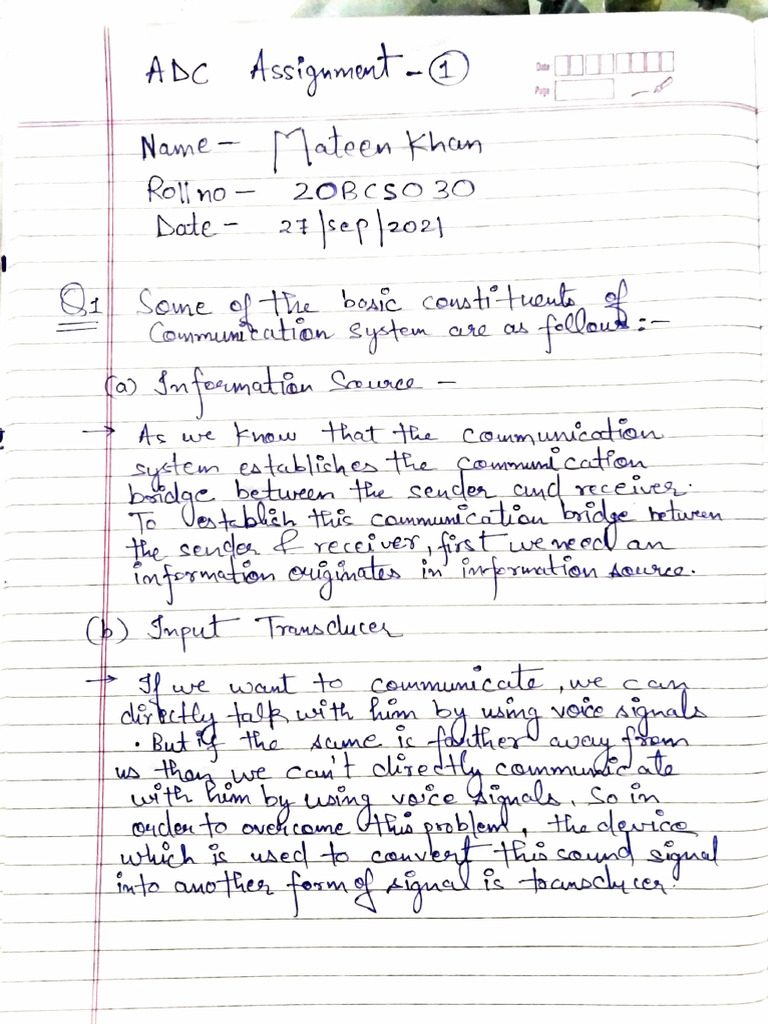 ADC Assignment - 1
Date
Page
Name - Mateen Khan
Roll no - 20BCS030
Date - 27/sep/2021
Q1 Some of the basic constituents of
Communication system are as follows :-
(a) Information Source -
→ As we know that the communication
system establishes the communication
bridge between the sender and receiver.
To establish this communication bridge between
the sender & receiver, first we need an
information originates in information source.
(b) Input Transducer
→ If we want to communicate, we can
directly talk with him by using voice signals
. But if the same is farther away from
us then we can't directly communicate
with him by using voice signals. So in
order to overcome this problem, the device
which is used to convert this sound signal
into another form of signal is transducer.